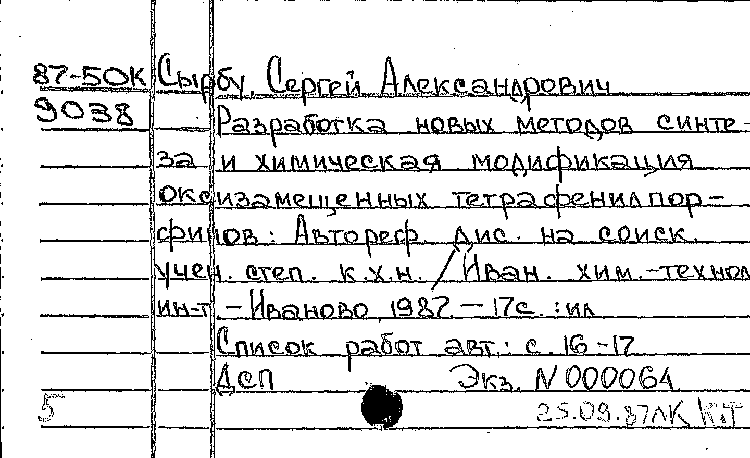 87-50К Сырбу, Сергей Александрович
9038 Разработка новых методов синте-
за и химическая модификация
оксизамещенных тетрафенилпор-
финов: Автореф. дис. на соиск.
учен. степ. к.х.н. / Иван. хим.-технол
ин-т - Иваново, 1987 - 17с. : ил
Список работ авт.: с. 16-17
ДСП Экз. N 000064
5 25.09.87 ЛК КТ